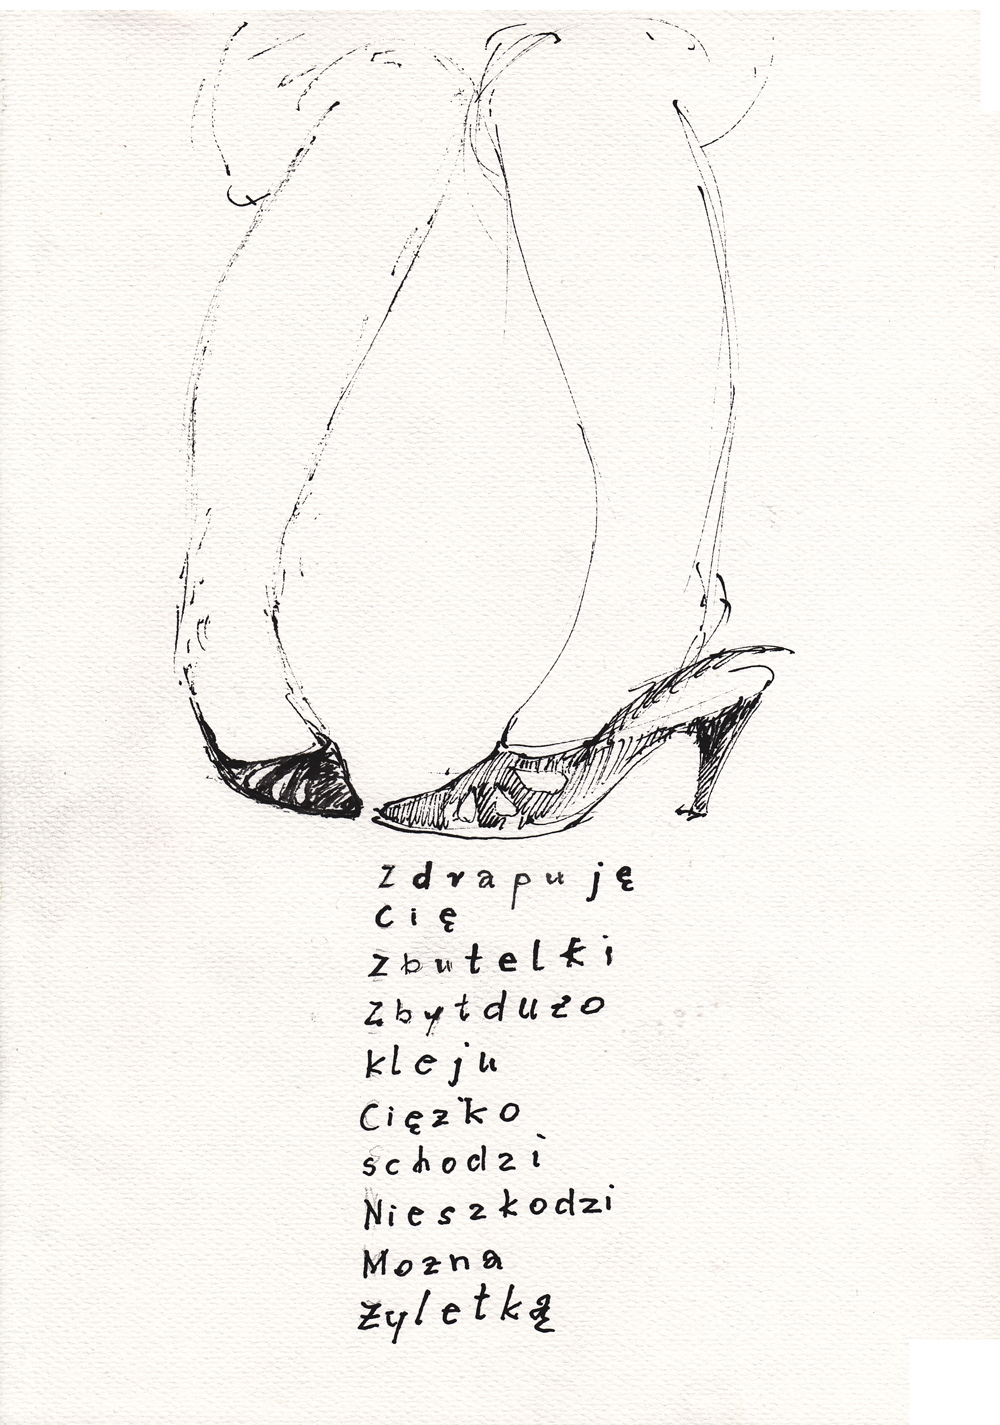 Zdrapuję
Cię
Zbutelki
Zbytduzo
kleju
Cięzko
schodzi
Nieszkodzi
Mozna
Zyletką